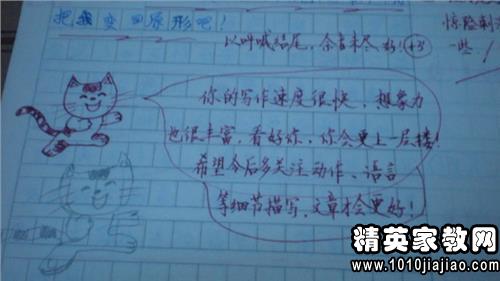 把我变回原形吧！
以叫喊结尾，余音未尽 好！ +3
惊险刺
一些！
你的写作速度很快，想象力
也很丰富，看好你，你会更上一层楼！
希望今后多关注动作、语言
等细节描写，文章才会更好！
精英家教网
www.1010jiajiao.com